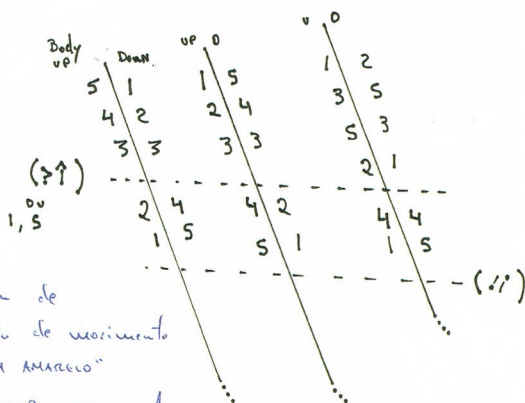 Body
up Down
5 1
4 2
3 3
2 4
1 5
up D
1 5
2 4
3 3
4 2
5 1
u D
1 2
3 5
5 3
2 1
4 4
1 5
(>↑)
DU
1, 5
de
de movimento
AMARELO"